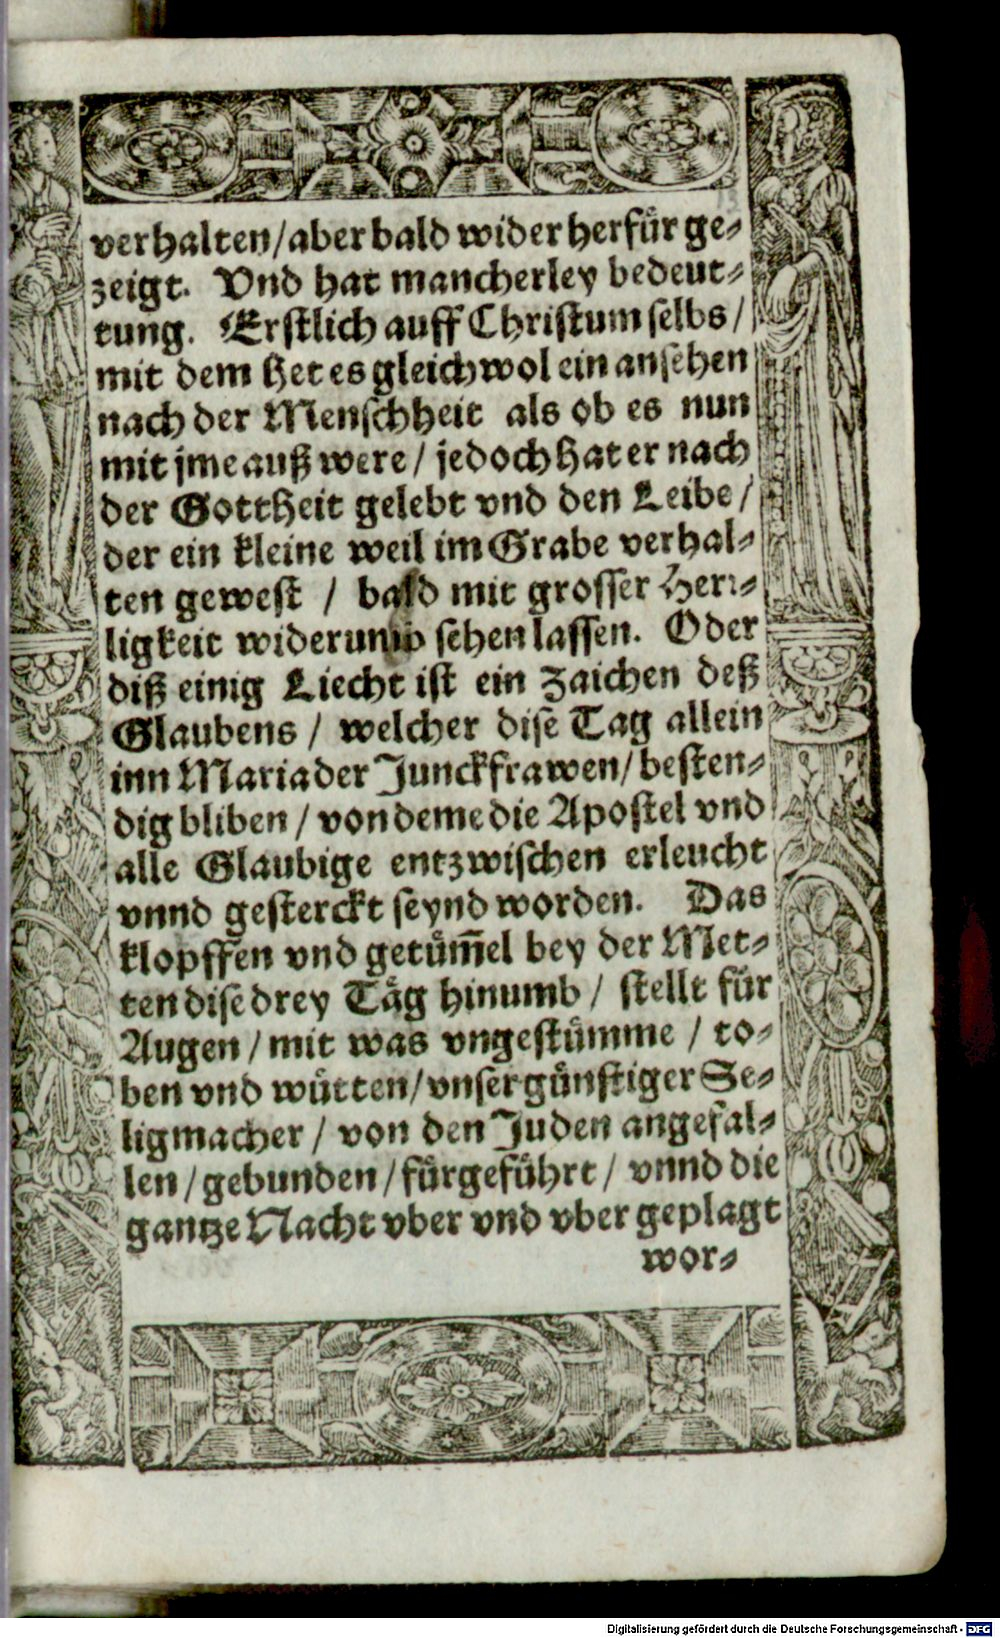 verhalten/aber bald wider herfür ge⸗
zeigt. Vnd hat mancherley bedeut⸗
tung. Erstlich auff Christum selbs/
mit dem het es gleichwol ein ansehen
nach der Menschheit als ob es nun
mit jme auß were/ jedoch hat er nach
der Gottheit gelebt vnd den Leibe/
der ein kleine weil im Grabe verhal⸗
ten gewest / bald mit grosser Herr⸗
ligkeit widerumb sehen lassen. Oder
diß einig Liecht ist ein zaichen deß
Glaubens/ welcher dise Tag allein
inn Maria der Junckfrawen/ besten⸗
dig bliben/ von deme die Apostel vnd
alle Glaubige entzwischen erleucht
vnnd gesterckt seynd worden. Das
klopffen vnd getüm̃el bey der Met⸗
ten dise drey Täg hinumb/ stellt für
Augen/ mit was vngestümme / to⸗
ben vnd wütten/ vnser günstiger Se⸗
ligmacher/ von den Juden angefal⸗
len/ gebunden/ fürgeführt/ vnnd die
gantze Nacht vber vnd vber geplagt
wor⸗
Digitalisierung gefördert durch die Deutsche Forschungsgemeinschaft - DFG